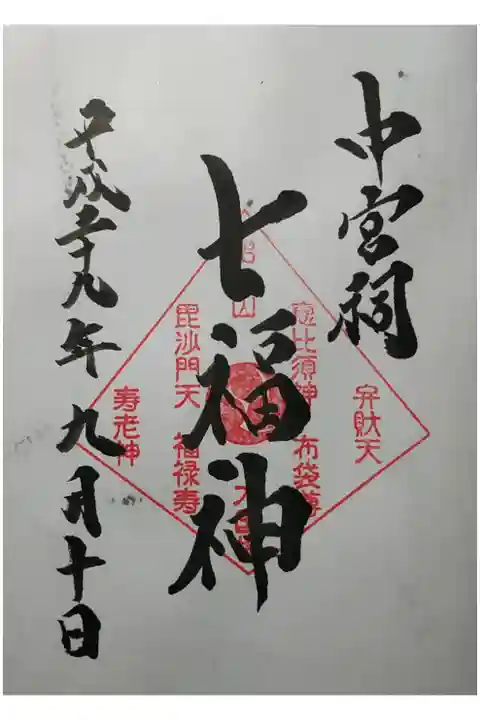 中宮祠
七福神
平成二十九年九月十日
弁財天
恵比須神
布袋尊
毘沙門天
福禄寿
寿老神